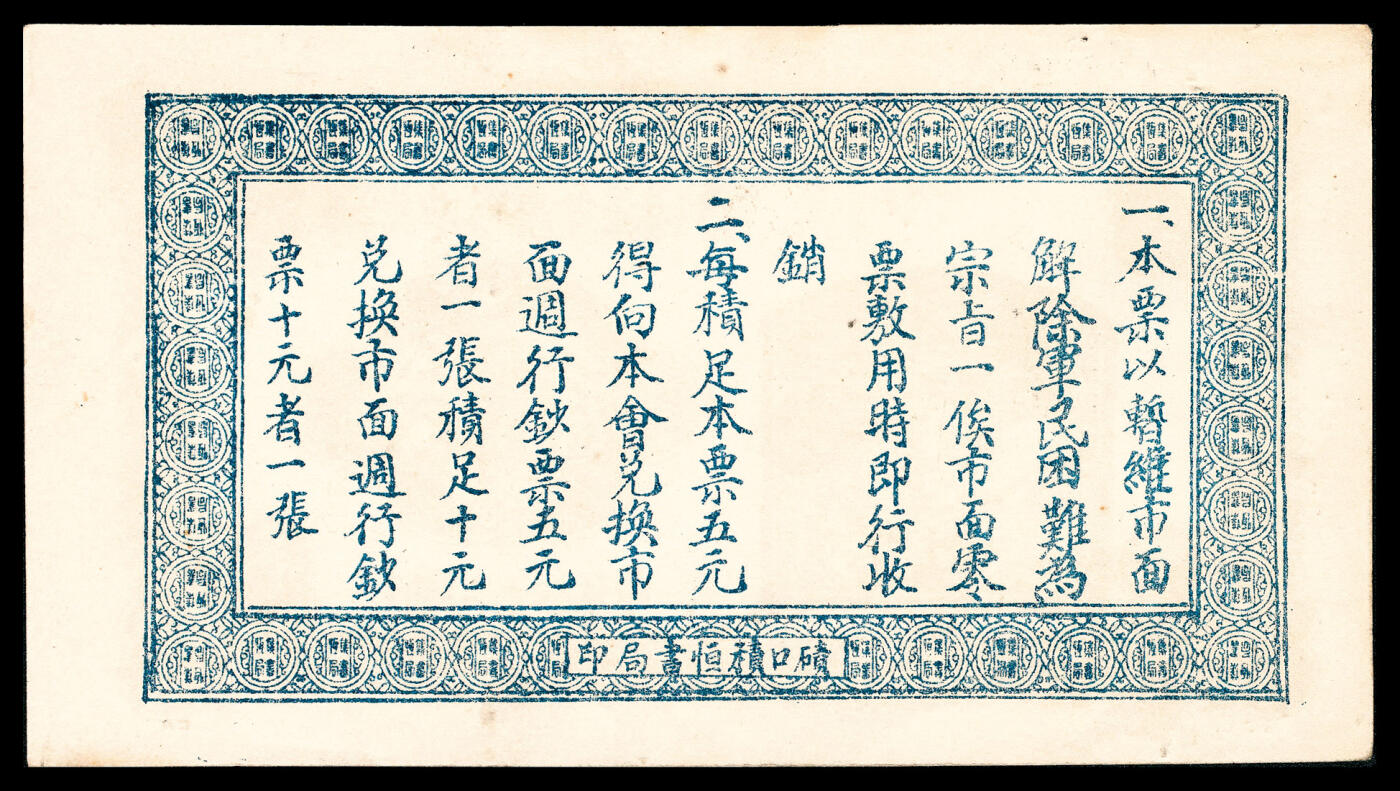 一、本票以暫維市面
解除軍民困難為
宗旨一俟市面零
票敷用時即行收
銷
二、每積足本票五元
得向本會兑換市
面週行鈔票五元
者一張積足十元
兑換市面週行鈔
票十元者一張
磧口積恒書局印